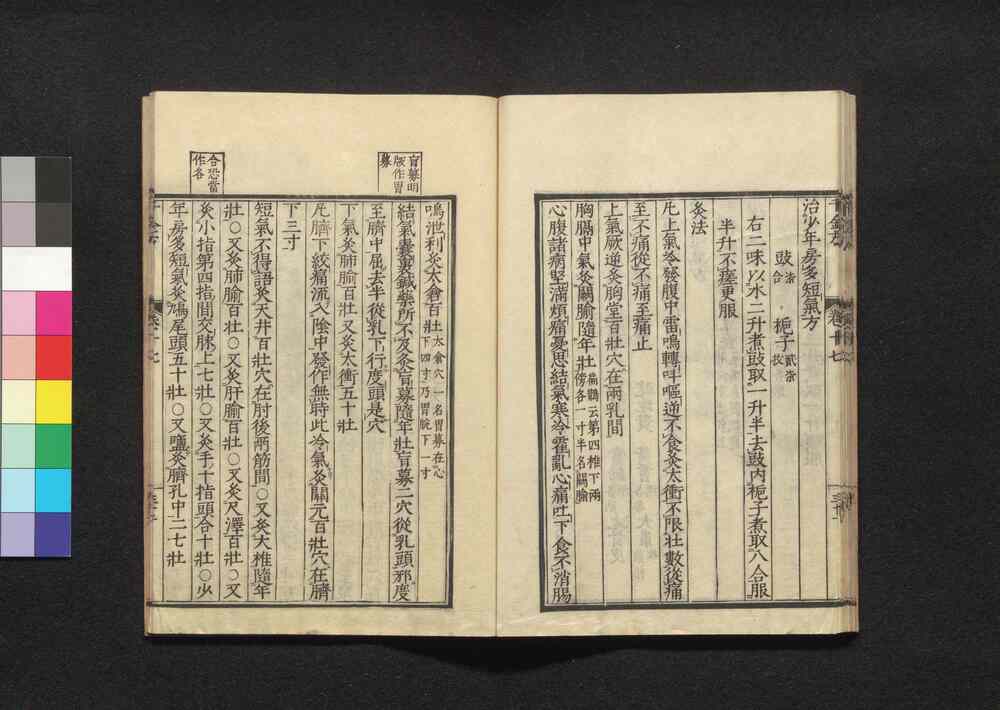 治少年房多短氣方
豉柒合 梔子貳柒枚
右二味以水二升煮豉取一升半去豉內梔子煮取八合服
半升不瘥更服
灸法
凡上氣冷發腹中雷鳴轉叫嘔逆不食灸太衝不限壯數從痛
至不痛從不痛至痛止
上氣厥逆灸胸堂百壯穴在兩乳間
胸膈中氣灸闕腧隨年壯扁鵲云第四椎下兩傍各一寸半名闕腧
心腹諸病堅滿煩痛憂思結氣寒冷霍亂心痛吐下食不消腸
鳴泄利灸太倉百壯太倉穴一名胃募在心下四寸乃胃脘下一寸
結氣囊裹鍼藥所不及灸肓募隨年壯肓募二穴從乳頭邪度
至臍中屈去半從乳下行度頭是穴
下氣灸肺腧百壯又灸太衝五十壯
凡臍下絞痛流入陰中發作無時此冷氣灸關元百壯穴在臍
下三寸
短氣不得語灸天井百壯穴在肘後兩筋間○又灸大椎隨年
壯○又灸肺腧百壯○又灸肝腧百壯○又灸尺澤百壯○又
灸小指第四指間交脉上七壯○又灸手十指頭合十壯○少
年房多短氣灸鳩尾頭五十壯○又鹽灸臍孔中二七壯
肓募明
版作胃
募
合恐當
作各
千金方
卷十七